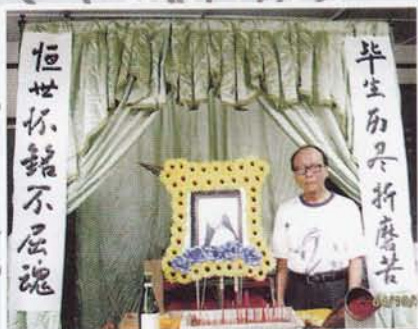 毕生历尽折磨苦
恒世怀铭不屈魂